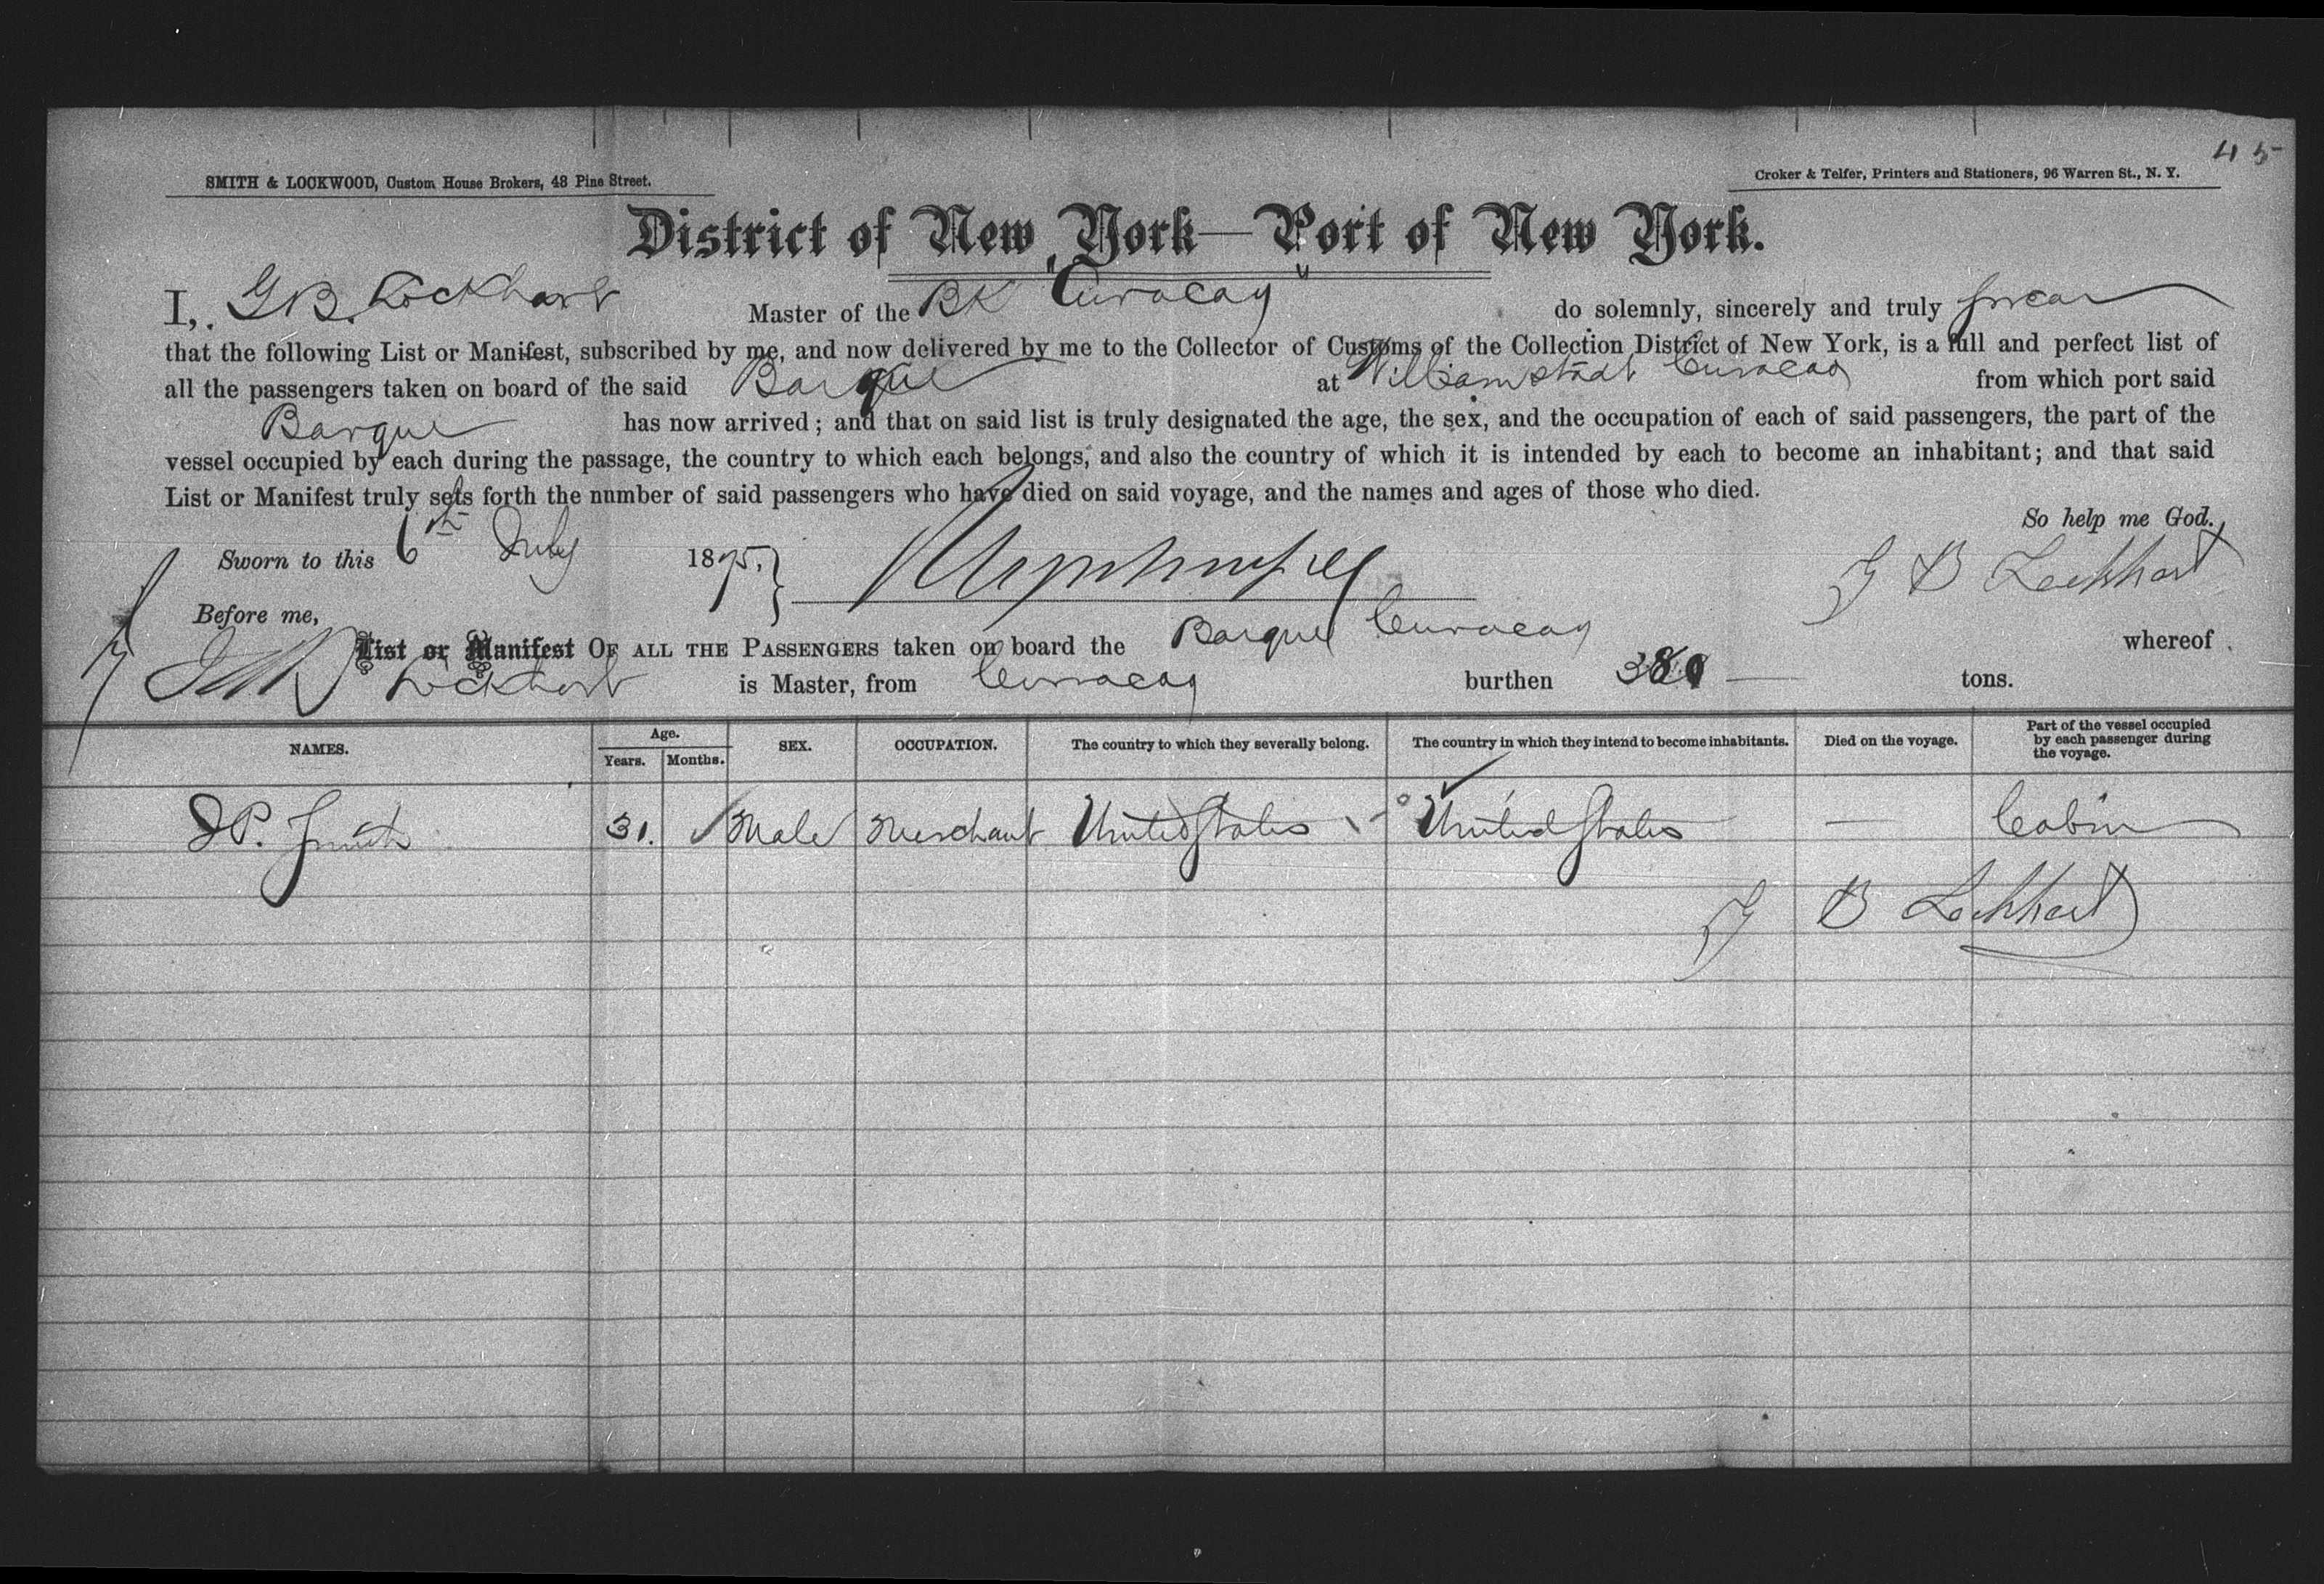 45
SMITH & LOCKWOOD, Custom House Brokers, 48 Pine Street.
Croker & Telfer, Printers and Stationers, 96 Warren St., N. Y.
District of New York—Port of New York.
I, G B. Lockhart Master of the Bk Curacao do solemnly, sincerely and truly swear
that the following List or Manifest, subscribed by me, and now delivered by me to the Collector of Customs of the Collection District of New York, is a full and perfect list of
all the passengers taken on board of the said Barque at Williamstadt Curacao from which port said
Barque has now arrived; and that on said list is truly designated the age, the sex, and the occupation of each of said passengers, the part of the
vessel occupied by each during the passage, the country to which each belongs, and also the country of which it is intended by each to become an inhabitant; and that said
List or Manifest truly sets forth the number of said passengers who have died on said voyage, and the names and ages of those who died.
So help me God.
Sworn to this 6th July 1875, } G B Lockhart
Before me,
List or Manifest OF ALL THE PASSENGERS taken on board the Barque Curacao whereof
Lockhart is Master, from Curacao burthen tons.
NAMES. Age. Years. Months. SEX. OCCUPATION. The country to which they severally belong. The country in which they intend to become inhabitants. Died on the voyage. Part of the vessel occupied by each passenger during the voyage.
P. Smith 31. Male Merchant United States United States — Cabin
G B Lockhart